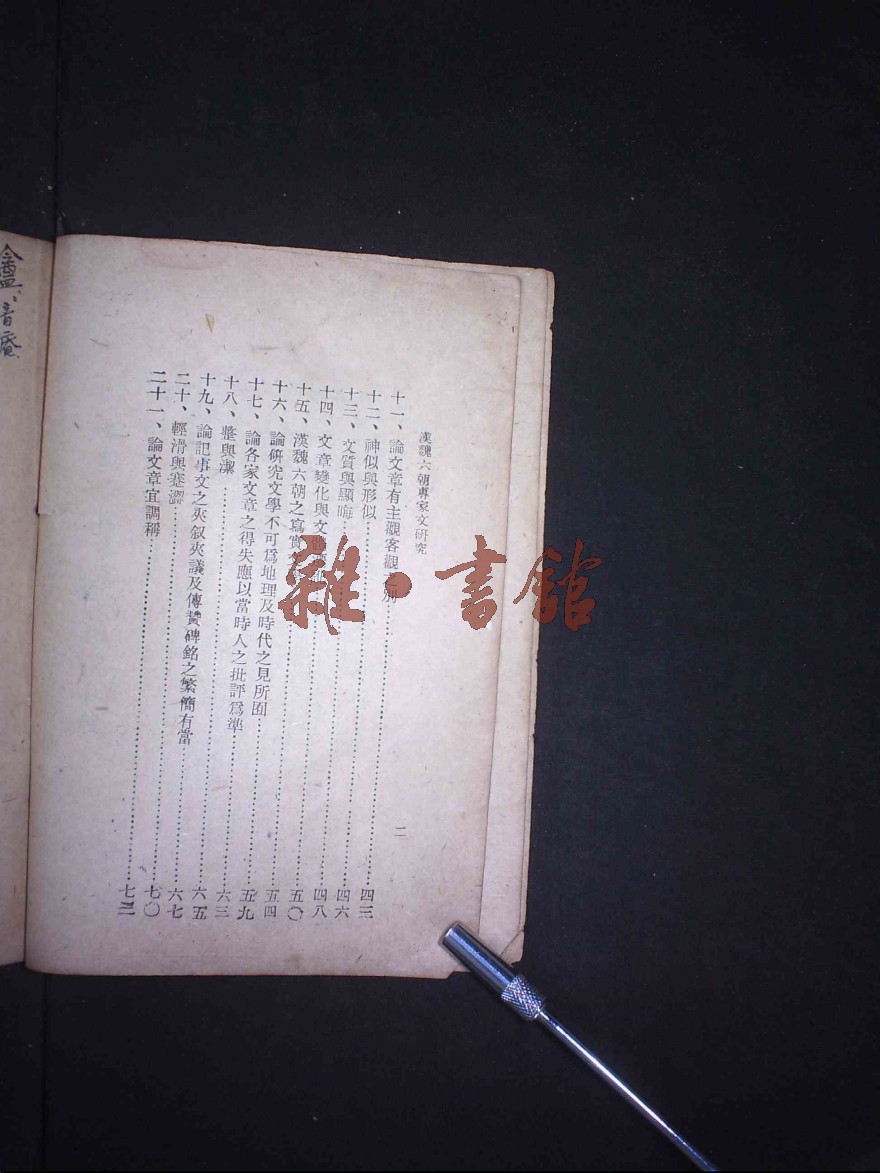 漢魏六朝專家文研究
二
十一、論文章有主觀客觀之別……四三
十二、神似與形似……四六
十三、文質與顯晦……四八
十四、文章變化與文體……五〇
十五、漢魏六朝之寫實……五四
十六、論研究文學不可爲地理及時代之見所囿……五九
十七、論各家文章之得失應以當時人之批評爲準……六三
十八、整與潔……六五
十九、論記事文之夾叙夾議及傳贊碑銘之繁簡有當……六七
二十、輕滑與蹇澀……七〇
二十一、論文章宜調稱……七二
雜·書館